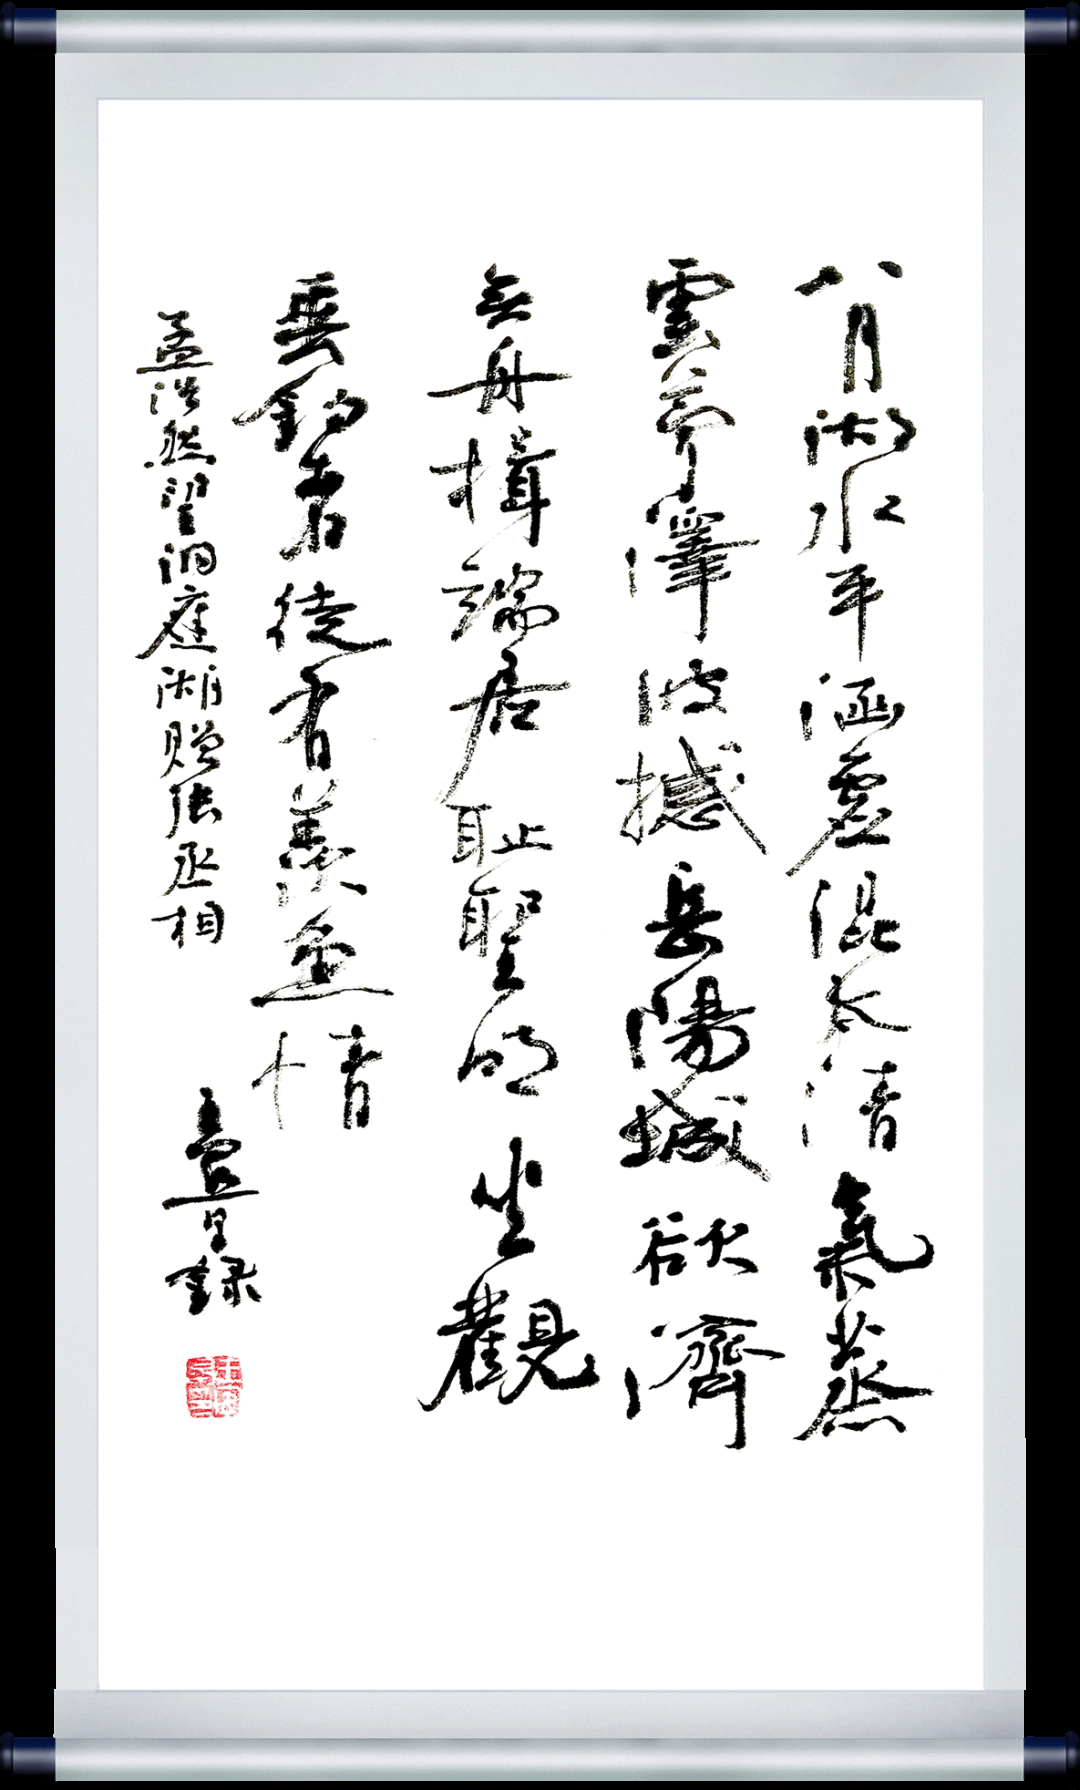 八月湖水平涵虛混太清氣蒸
雲夢澤波撼岳陽城欲濟
無舟楫端居耻聖明坐觀
垂釣者徒有羨魚情
孟浩然望洞庭湖贈張丞相
錄